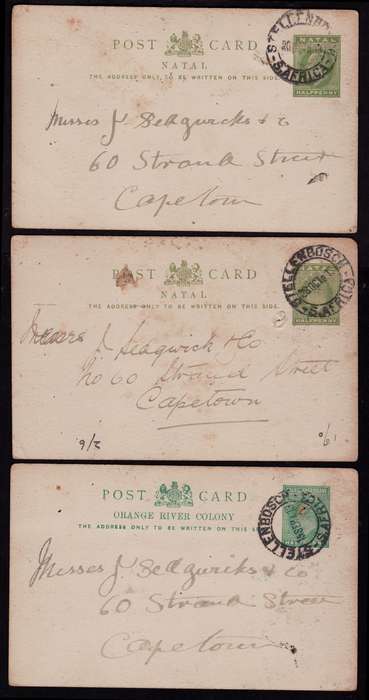 POST CARD
NATAL
THE ADDRESS ONLY TO BE WRITTEN ON THIS SIDE
NATAL
HALFPENNY
STELLENBOSCH
S.AFRICA
Messes J Sedgwicks & Co
60 Strand Street
Capetown
POST CARD
NATAL
THE ADDRESS ONLY TO BE WRITTEN ON THIS SIDE.
HALFPENNY
STELLENBOSCH
S.AFRICA
Messrs J. Sedgwick & Co
No 60 Strand Street
Capetown
POST CARD
ORANGE RIVER COLONY
THE ADDRESS ONLY TO BE WRITTEN ON THIS SIDE.
STELLENBOSCH
S.AFRICA
Messes J Sedgwicks & Co
60 Strand Street
Capetown